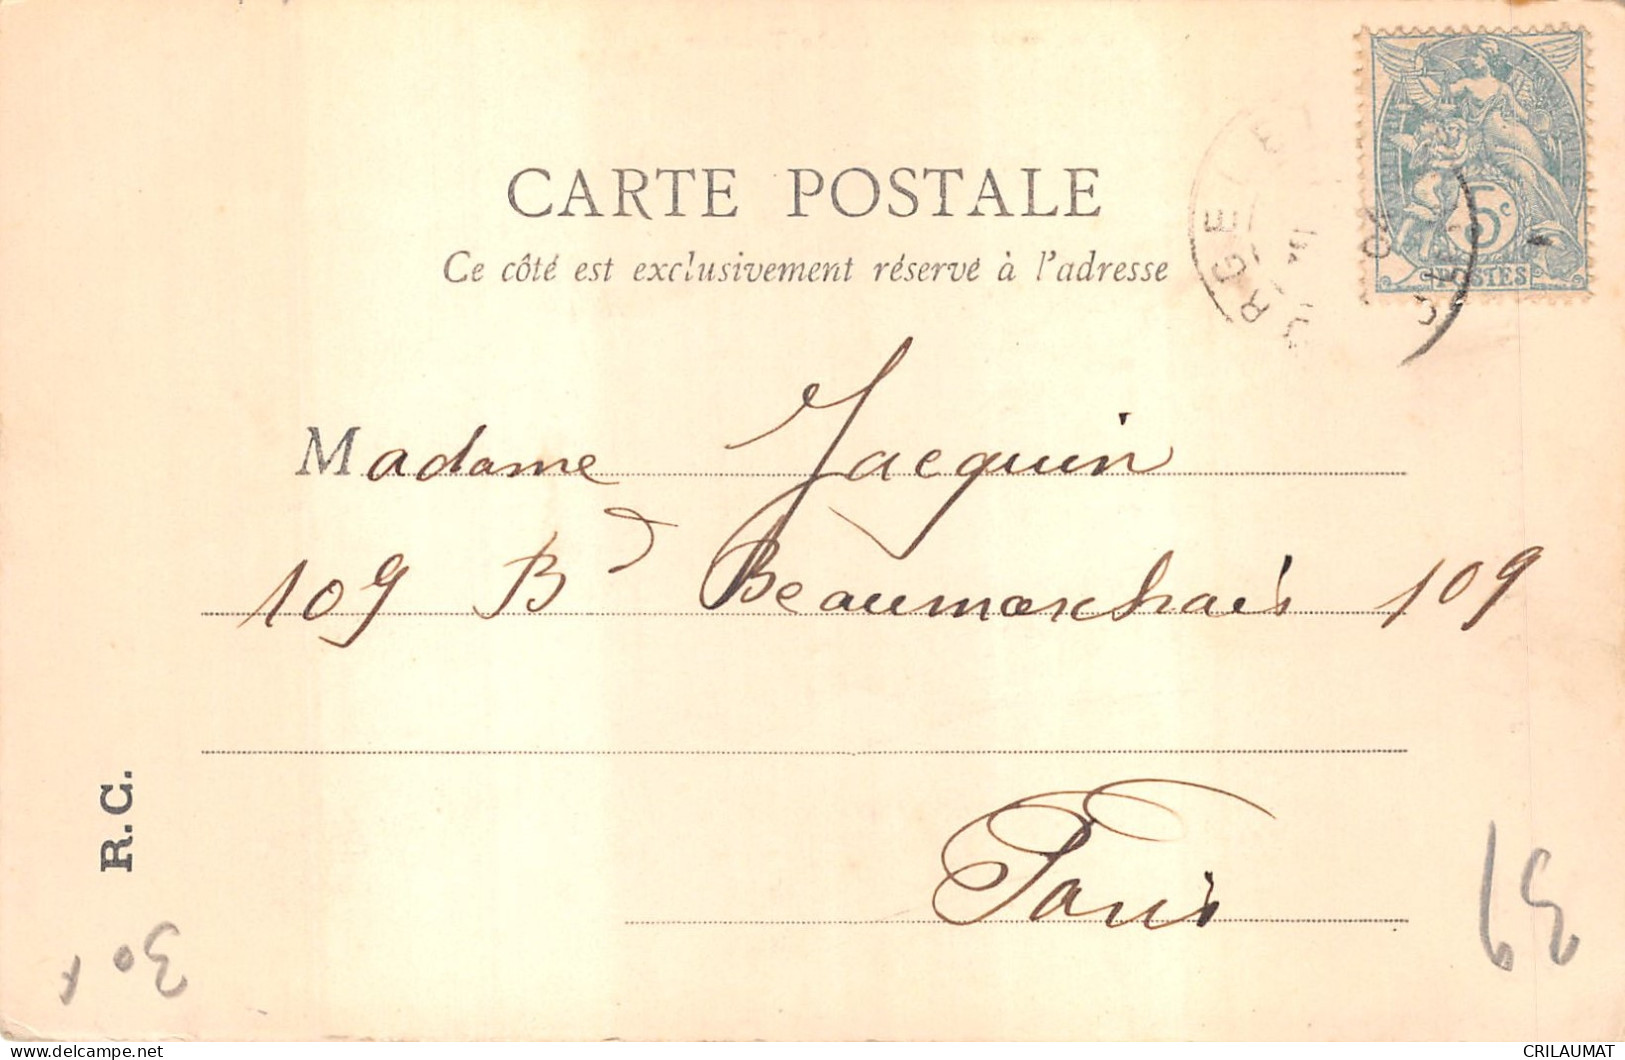 CARTE POSTALE
Ce côté est exclusivement réservé à l'adresse
5c
POSTES
04
Madame Jacquin
109 Bd Beaumarchais 109
Paris
R.C.
30
CRILAUMAT